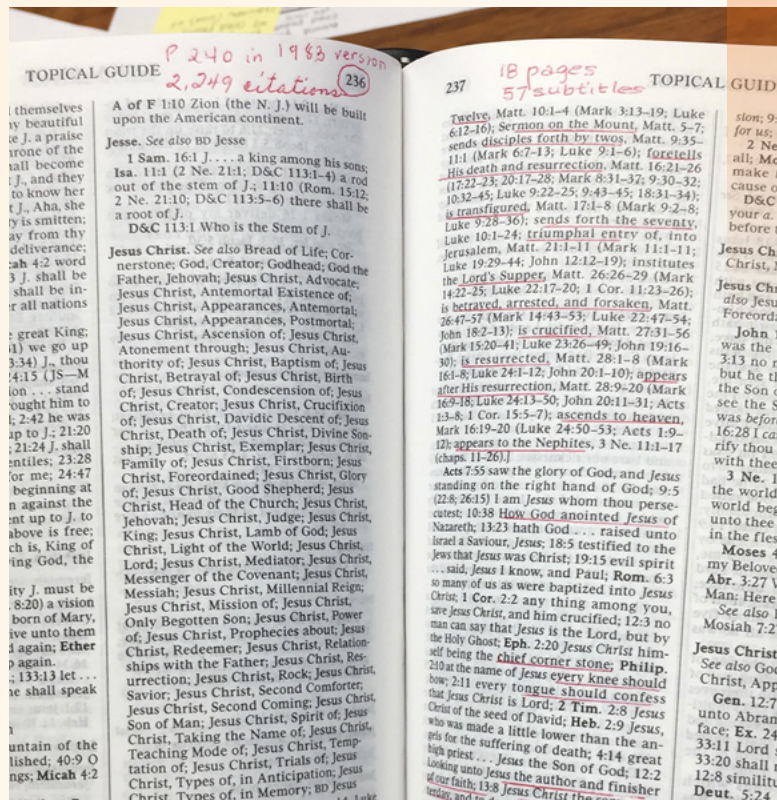 P 240 in 1983 version
2,249 citations
TOPICAL GUIDE
236
themselves
y beautiful
e J. a praise
hrone of the
hall become
t J., and they
to know her
t J., Aha, she
y is smitten;
ay from thy
deliverance;
ah 4:2 word
3 J. shall be
shall be in-
r all nations
great King;
1) we go up
3:34) J., thou
4:15 (JS—M
ion . . . stand
ought him to
; 2:42 he was
up to J.; 21:20
; 21:24 J. shall
entiles; 23:28
or me; 24:47
beginning at
n against the
ent up to J. to
above is free;
ch is, King of
ing God, the
ity J. must be
8:20) a vision
born of Mary,
ive unto them
d again; Ether
p again.
; 133:13 let . . .
e shall speak
untain of the
lished; 40:9 O
ngs; Micah 4:2
A of F 1:10 Zion (the N. J.) will be built
upon the American continent.
Jesse. See also BD Jesse
1 Sam. 16:1 J. . . . a king among his sons;
Isa. 11:1 (2 Ne. 21:1; D&C 113:1–4) a rod
out of the stem of J.; 11:10 (Rom. 15:12;
2 Ne. 21:10; D&C 113:5–6) there shall be
a root of J.
D&C 113:1 Who is the Stem of J.
Jesus Christ. See also Bread of Life; Cor-
nerstone; God, Creator; Godhead; God the
Father, Jehovah; Jesus Christ, Advocate;
Jesus Christ, Antemortal Existence of;
Jesus Christ, Appearances, Antemortal;
Jesus Christ, Appearances, Postmortal;
Jesus Christ, Ascension of; Jesus Christ,
Atonement through; Jesus Christ, Au-
thority of; Jesus Christ, Baptism of; Jesus
Christ, Betrayal of; Jesus Christ, Birth
of; Jesus Christ, Condescension of; Jesus
Christ, Creator; Jesus Christ, Crucifixion
of; Jesus Christ, Davidic Descent of; Jesus
Christ, Death of; Jesus Christ, Divine Son-
ship; Jesus Christ, Exemplar; Jesus Christ,
Family of; Jesus Christ, Firstborn; Jesus
Christ, Foreordained; Jesus Christ, Glory
of; Jesus Christ, Good Shepherd; Jesus
Christ, Head of the Church; Jesus Christ,
Jehovah; Jesus Christ, Judge; Jesus Christ,
King; Jesus Christ, Lamb of God; Jesus
Christ, Light of the World; Jesus Christ,
Lord; Jesus Christ, Mediator; Jesus Christ,
Messenger of the Covenant; Jesus Christ,
Messiah; Jesus Christ, Millennial Reign;
Jesus Christ, Mission of; Jesus Christ,
Only Begotten Son; Jesus Christ, Power
of; Jesus Christ, Prophecies about; Jesus
Christ, Redeemer; Jesus Christ, Relation-
ships with the Father; Jesus Christ, Res-
urrection; Jesus Christ, Rock; Jesus Christ,
Savior; Jesus Christ, Second Comforter;
Jesus Christ, Second Coming; Jesus Christ,
Son of Man; Jesus Christ, Spirit of; Jesus
Christ, Taking the Name of; Jesus Christ,
Teaching Mode of; Jesus Christ, Temp-
tation of; Jesus Christ, Trials of; Jesus
Christ, Types of, in Anticipation; Jesus
Christ, Types of, in Memory; BD Jesus
237
18 pages
57 subtitles
TOPICAL GUID
Twelve, Matt. 10:1–4 (Mark 3:13–19; Luke
6:12–16); Sermon on the Mount, Matt. 5–7;
sends disciples forth by twos, Matt. 9:35–
11:1 (Mark 6:7–13; Luke 9:1–6); foretells
His death and resurrection, Matt. 16:21–26
(17:22–23; 20:17–28; Mark 8:31–37; 9:30–32;
10:32–45; Luke 9:22–25; 9:43–45; 18:31–34);
is transfigured, Matt. 17:1–8 (Mark 9:2–8;
Luke 9:28–36); sends forth the seventy,
Luke 10:1–24; triumphal entry of, into
Jerusalem, Matt. 21:1–11 (Mark 11:1–11;
Luke 19:29–44; John 12:12–19); institutes
the Lord's Supper, Matt. 26:26–29 (Mark
14:22–25; Luke 22:17–20; 1 Cor. 11:23–26);
is betrayed, arrested, and forsaken, Matt.
26:47–57 (Mark 14:43–53; Luke 22:47–54;
John 18:2–13); is crucified, Matt. 27:31–56
(Mark 15:20–41; Luke 23:26–49; John 19:16–
30); is resurrected, Matt. 28:1–8 (Mark
16:1–8; Luke 24:1–12; John 20:1–10); appears
after His resurrection, Matt. 28:9–20 (Mark
16:9–18; Luke 24:13–50; John 20:11–31; Acts
1:3–8; 1 Cor. 15:5–7); ascends to heaven,
Mark 16:19–20 (Luke 24:50–53; Acts 1:9–
12); appears to the Nephites, 3 Ne. 11:1–17
(chaps. 11–26).]
Acts 7:55 saw the glory of God, and Jesus
standing on the right hand of God; 9:5
(22:8; 26:15) I am Jesus whom thou perse-
cutest; 10:38 How God anointed Jesus of
Nazareth; 13:23 hath God . . . raised unto
Israel a Saviour, Jesus; 18:5 testified to the
Jews that Jesus was Christ; 19:15 evil spirit
. . . said, Jesus I know, and Paul; Rom. 6:3
so many of us as were baptized into Jesus
Christ; 1 Cor. 2:2 any thing among you,
save Jesus Christ, and him crucified; 12:3 no
man can say that Jesus is the Lord, but by
the Holy Ghost; Eph. 2:20 Jesus Christ him-
self being the chief corner stone; Philip.
2:10 at the name of Jesus every knee should
bow; 2:11 every tongue should confess
that Jesus Christ is Lord; 2 Tim. 2:8 Jesus
Christ of the seed of David; Heb. 2:9 Jesus,
who was made a little lower than the an-
gels for the suffering of death; 4:14 great
high priest . . . Jesus the Son of God; 12:2
Looking unto Jesus the author and finisher
of our faith; 13:8 Jesus Christ the
sion; 9:
for us;
2 Ne.
all; Mo
make
cause o
D&C
your a.
before t
Jesus Ch
Christ,
Jesus Chr
also Jesu
Foreord
John 1
was the
3:13 no
but he th
the Son
see the S
was befor
16:28 I ca
rify thou
with thee
3 Ne. 1
the world
world beg
unto thee
in the fles
Moses 4
my Belove
Abr. 3:27
Man: Here
See also
Mosiah 7:2
Jesus Christ
See also God
Christ, App
Gen. 12:7
unto Abran
face; Ex. 24
33:11 Lord
33:20 shall
12:8 similit
Deut. 5:24